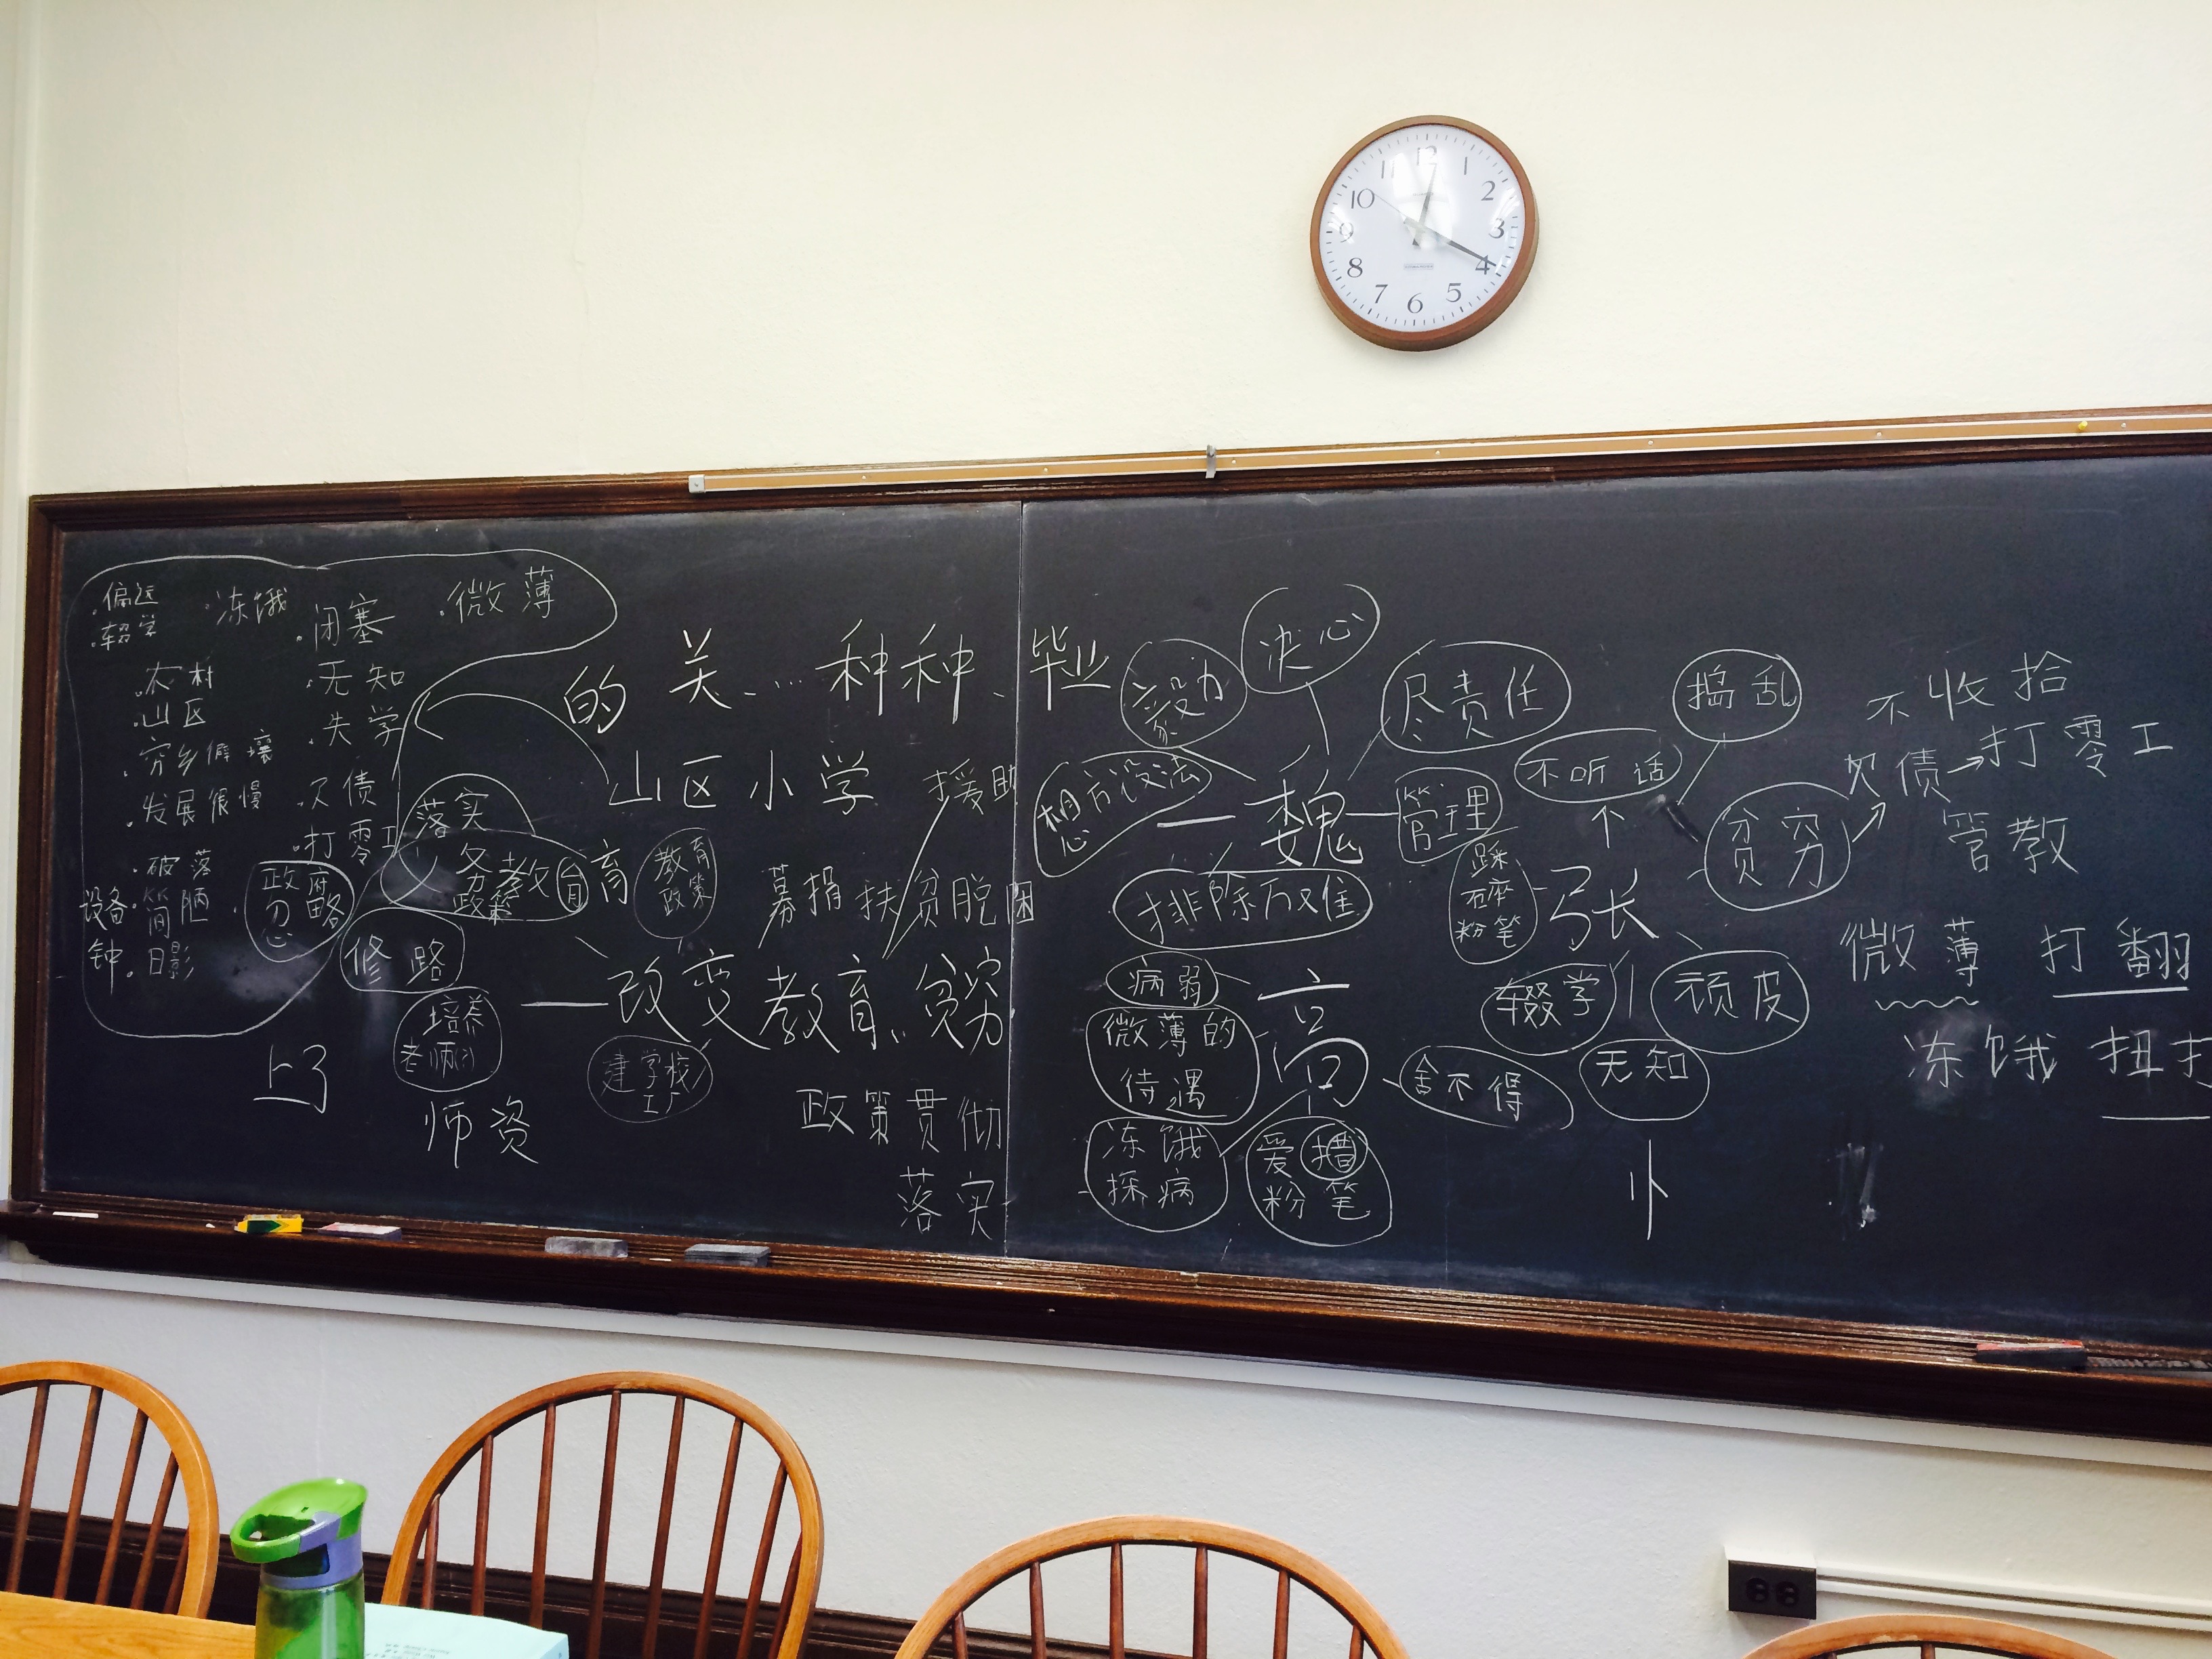 12
1
2
3
4
5
6
7
8
9
10
11
偏远
辍学
冻饿
闭塞
微薄
农村
山区
穷乡僻壤
发展很慢
破落
设备简陋
钟 日影
无知
失学
欠债
打零工
政府
忽略
落实
义务教育
政策
修路
培养
老师
上
师资
的 关 ... 种种 毕业
山区小学 援助
教育
政策
募捐 扶贫脱困
改变教育 贫穷
建学校
工厂
政策贯彻
落实
毅力
决心
尽责任
想方设法
魏
管理
排除万难
病弱
微薄的
待遇
高
舍不得
冻饿
探病
爱
粉笔
捣乱
不听话
踩
碎
粉笔
张
贫穷
辍学
顽皮
无知
不收拾
欠债→打零工
管教
微薄 打翻
冻饿 扭打